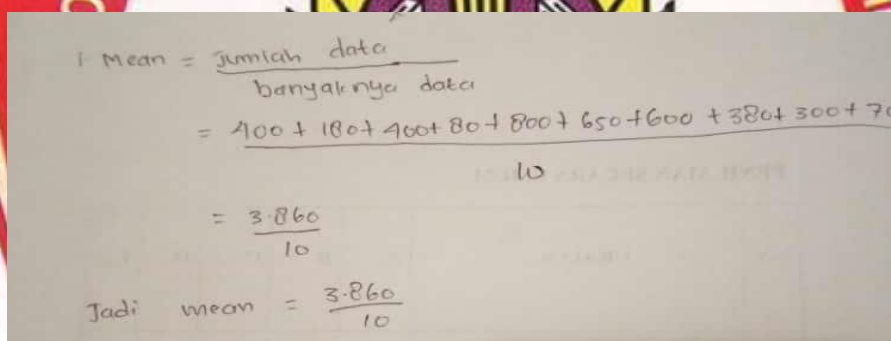 1 Mean = Jumlah data
banyaknya data
= 400 + 180 + 400 + 80 + 800 + 650 + 600 + 380 + 300 + 70
10
= 3.860
10
Jadi mean = 3.860
10